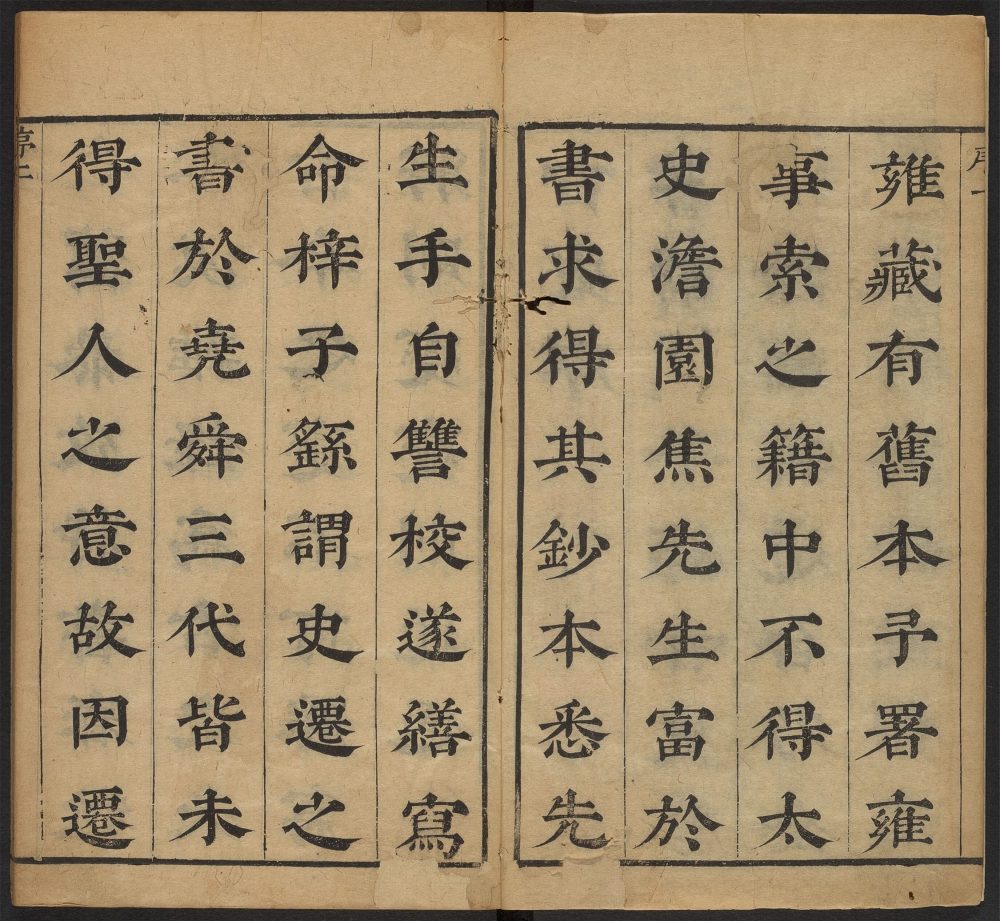 序一
雍藏有舊本予署雍
事索之籍中不得太
史澹園焦先生富於
書求得其鈔本悉先
生手自讐校遂繕寫
命梓子繇謂史遷之
書於堯舜三代皆未
得聖人之意故因遷